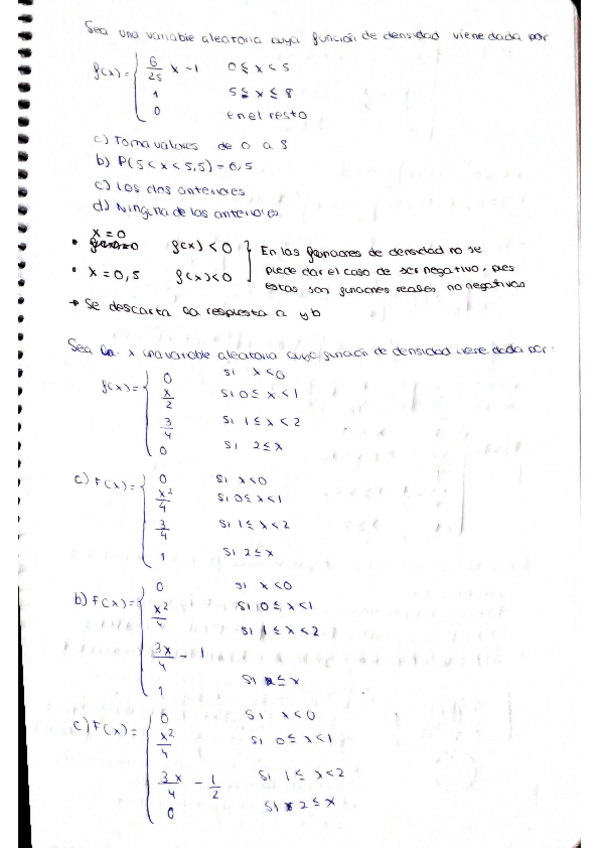 Sea una variable aleatoria cuya función de densidad viene dada por
f(x) = { 6/25 x - 1    0 ≤ x < 5
1    5 ≤ x ≤ 8
0    en el resto
a) Toma valores de 0 a 8
b) P(5 < x < 5,5) = 0,5
c) Los dos anteriores
d) Ninguna de las anteriores
• x = 0    f(x) < 0 } En las funciones de densidad no se
puede dar el caso de ser negativo, pues
• x = 0,5    f(x) < 0
estas son funciones reales no negativas
→ Se descarta la respuesta a y b
Sea x una variable aleatoria cuya función de densidad viene dada por:
f(x) = { 0    si x < 0
x/2    si 0 ≤ x < 1
3/4    si 1 ≤ x < 2
0    si 2 ≤ x
F(x) = { 0    si x < 0
x²/4    si 0 ≤ x < 1
3/4    si 1 ≤ x < 2
1    si 2 ≤ x
b) F(x) = { 0    si x < 0
x²/4    si 0 ≤ x < 1
si 1 ≤ x < 2
3x/4 - 1
1    si ≤ x
c) F(x) = { 0    si x < 0
x²/4    si 0 ≤ x < 1
3x/4 - 1/2    si 1 ≤ x < 2
0    si 2 ≤ x